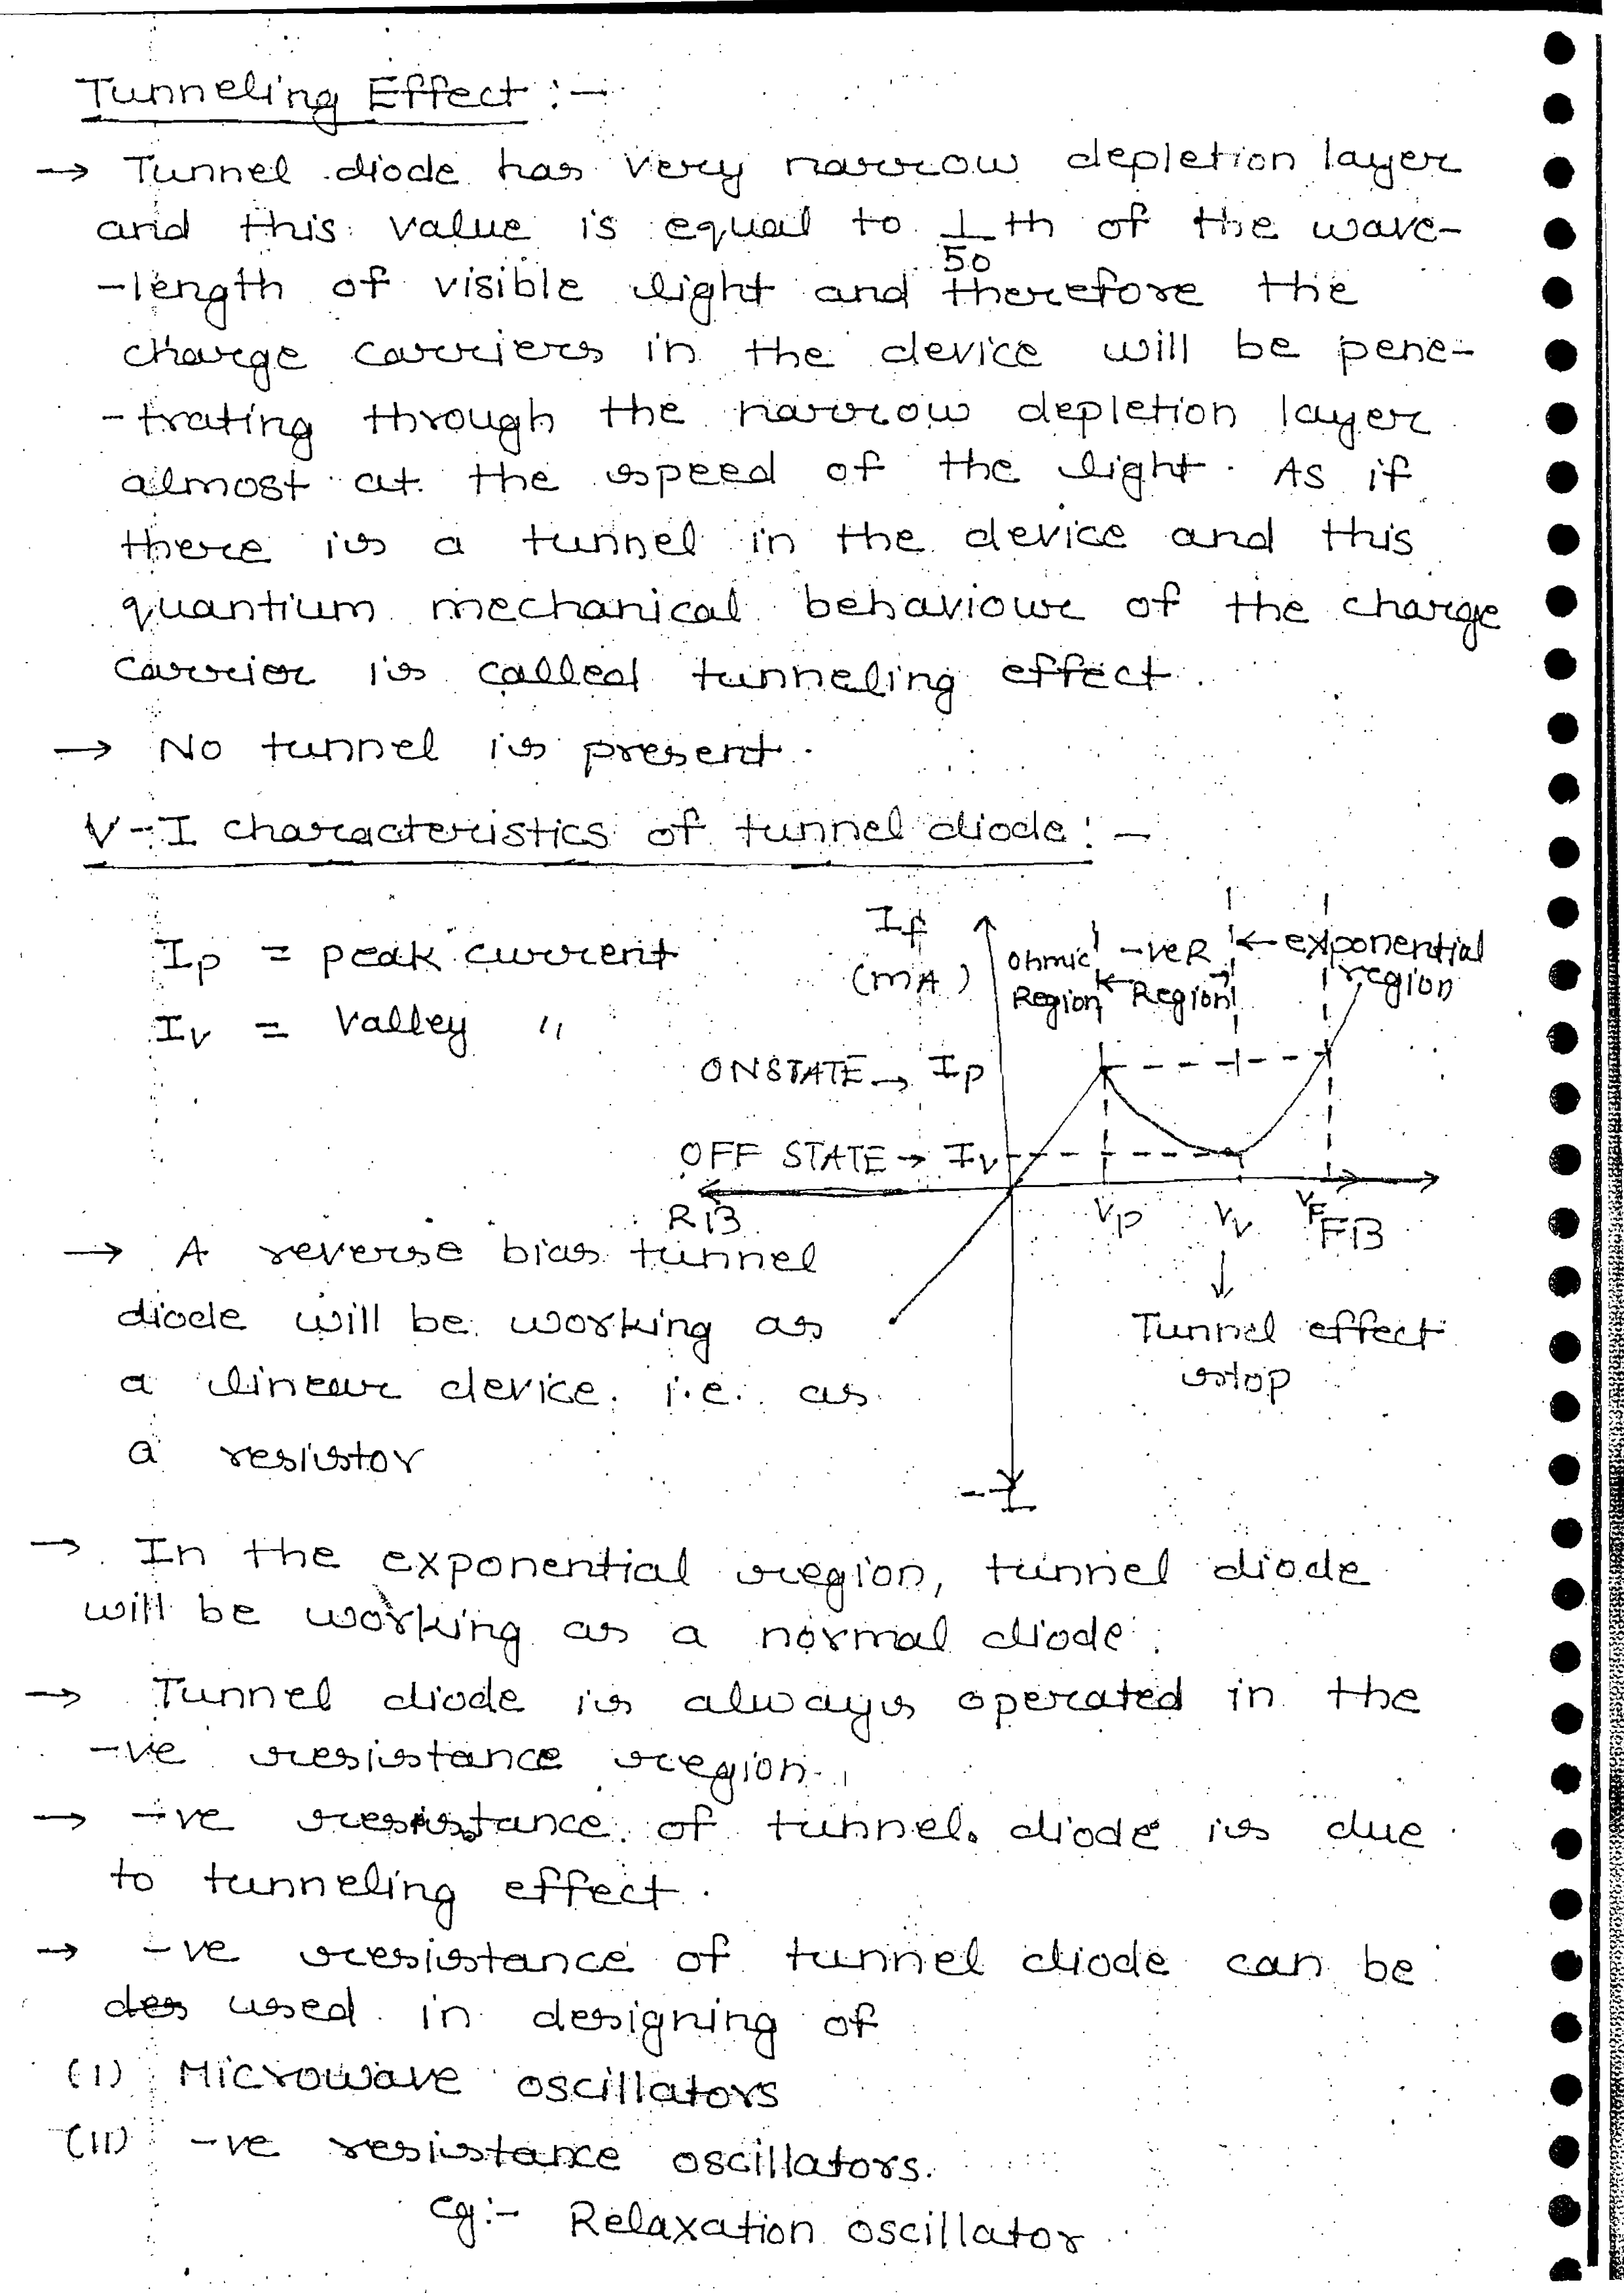 Tunneling Effect :-
→ Tunnel diode has very narrow depletion layer
and this value is equal to 1/50 th of the wave-
-length of visible light and therefore the
charge carriers in the device will be pene-
-trating through the narrow depletion layer
almost at the speed of the light. As if
there is a tunnel in the device and this
quantium mechanical behaviour of the charge
carrier is called tunneling effect.
→ No tunnel is present.
V-I characteristics of tunnel diode :-
Ip = peak current
Iv = Valley "
If
(mA)
Ohmic
Region
-ve R
Region
← exponential
region
ON STATE → Ip
OFF STATE → Iv
RB
Vp
Vv
VF
FB
↓
Tunnel effect
stop
-I
→ A reverse bias tunnel
diode will be working as
a linear device. i.e. as
a resistor
→ In the exponential region, tunnel diode
will be working as a normal diode.
→ Tunnel diode is always operated in the
-ve resistance region.
→ -ve resistance of tunnel diode is due
to tunneling effect.
→ -ve resistance of tunnel diode can be
des used in designing of
(I) Microwave oscillators
(II) -ve resistance oscillators.
eg:- Relaxation oscillator